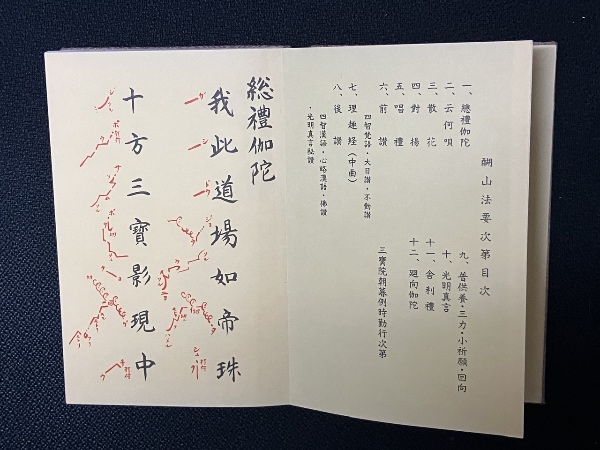 醐山法要次第目次
一、總禮伽陀
二、云何唄
三、散花
四、對揚
五、唱禮
六、前讃
四智梵語・大日讃・不動讃
七、理趣経（中曲）
八、後讃
四智漢語・心略漢語・佛讃
・光明真言秘讃
九、普供養・三力・小祈願・回向
十、光明真言
十一、舎利禮
十二、廻向伽陀
三寶院朝暮例時勤行次第
総禮伽陀
我此道場如帝珠
十方三寶影現中